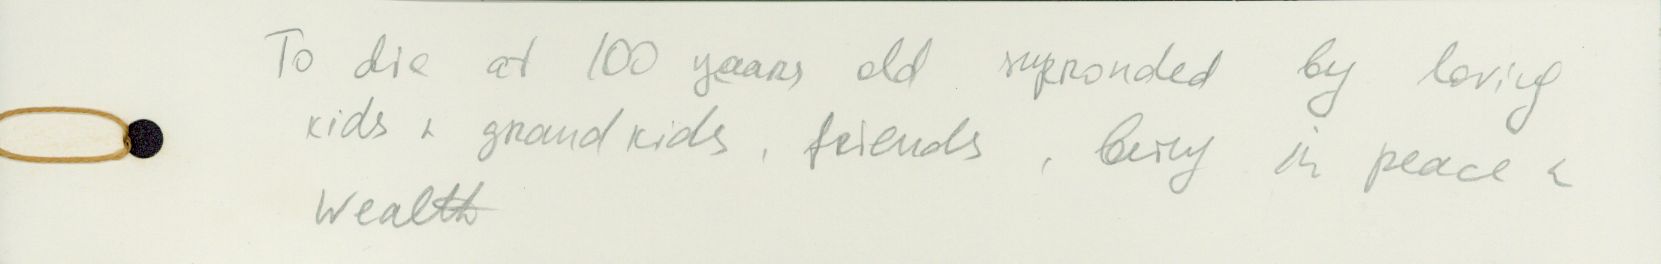 To die at 100 yeaars old surronded by loving
kids & grandkids, friends, being in peace &
Wealth